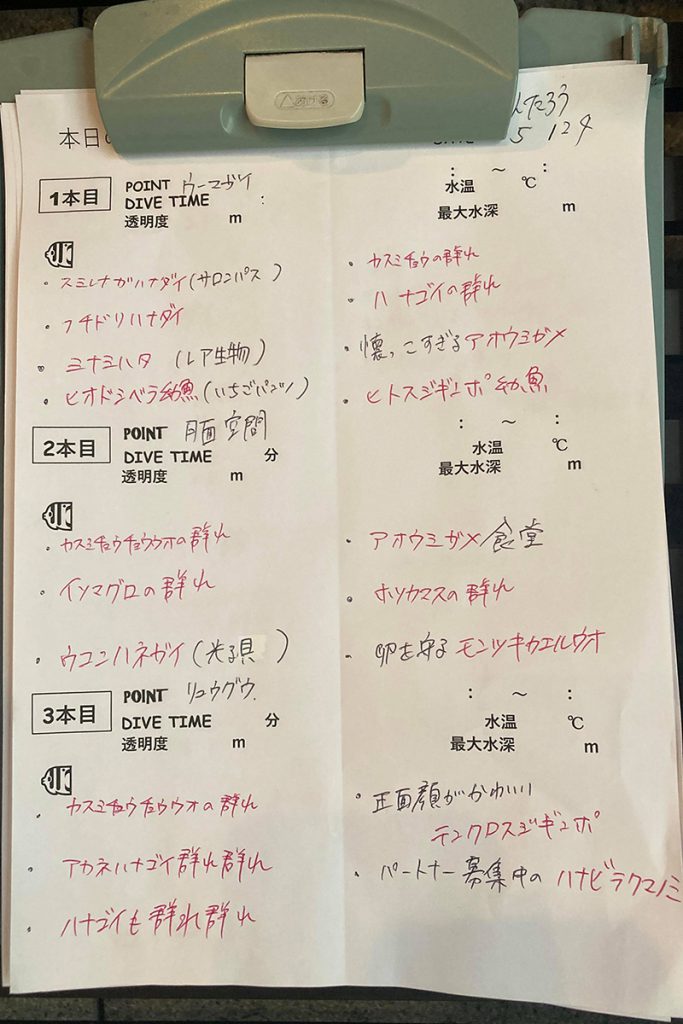 本日の
んたろう
5 12 4
1本目
POINT ウーマガイ
DIVE TIME :
透明度 m
: ~ :
水温 ℃
最大水深 m
・スミレナガハナダイ(サロンパス)
・フチドリハナダイ
・ミナミハタ (レア生物)
・ヒオドシベラ幼魚(いちごパンツ)
・カスミチョウの群れ
・ハナゴイの群れ
・懐っこすぎるアオウミガメ
・ヒトスジギンポ幼魚
2本目
POINT 月面空間
DIVE TIME 分
透明度 m
: ~ :
水温 ℃
最大水深 m
・カスミチョウチョウウオの群れ
・イソマグロの群れ
・ウコンハネガイ(光る貝)
・アオウミガメ食堂
・ホソカマスの群れ
・卵を守るモンツキカエルウオ
3本目
POINT リュウグウ
DIVE TIME 分
透明度 m
: ~ :
水温 ℃
最大水深 m
・カスミチョウチョウウオの群れ
・アカネハナゴイ群れ群れ
・ハナゴイも群れ群れ
・正面顔がかわいい
テンクロスジギンポ
・パートナー募集中のハナビラクマノミ